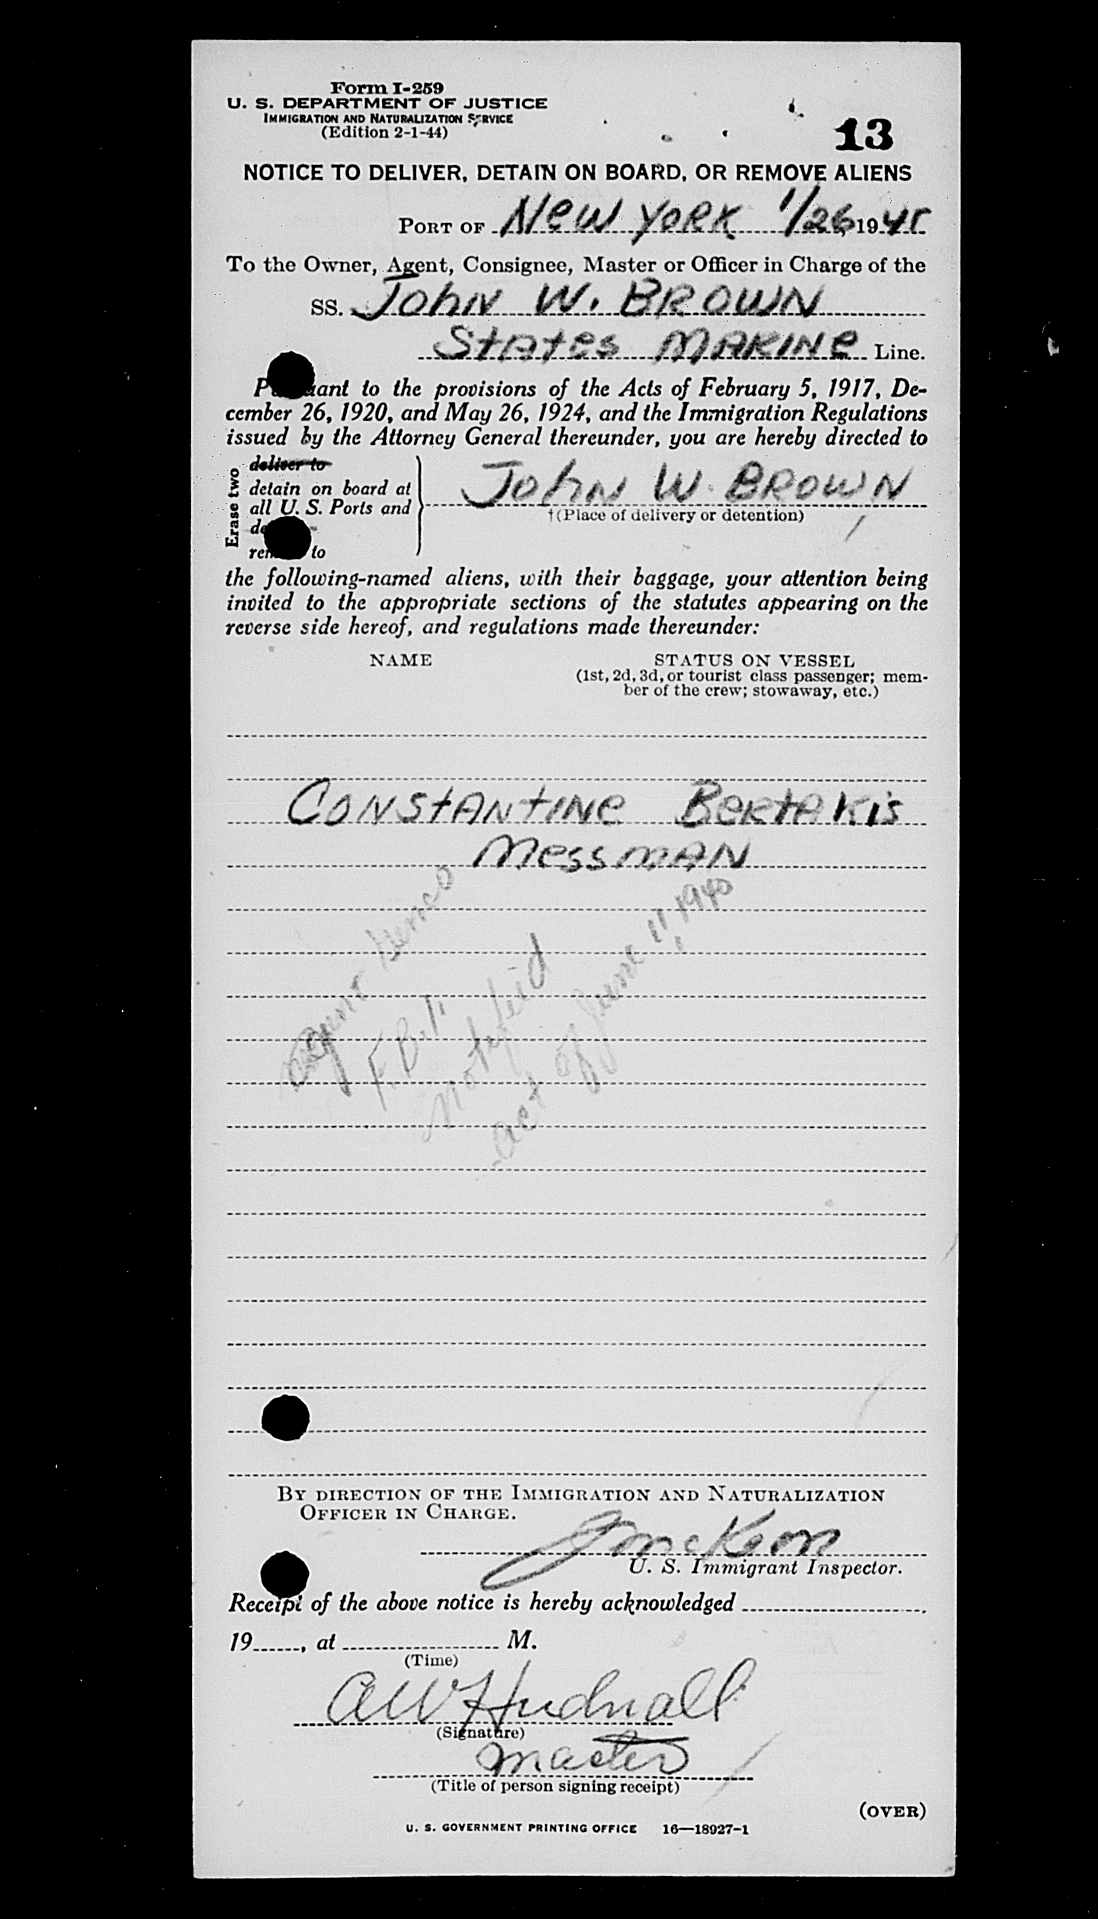 Form I-259
U. S. DEPARTMENT OF JUSTICE
IMMIGRATION AND NATURALIZATION SERVICE
(Edition 2-1-44)
13
NOTICE TO DELIVER, DETAIN ON BOARD, OR REMOVE ALIENS
PORT OF New York 1/26, 1945
To the Owner, Agent, Consignee, Master or Officer in Charge of the
SS. John W. Brown
States Marine Line.
Pursuant to the provisions of the Acts of February 5, 1917, De-
cember 26, 1920, and May 26, 1924, and the Immigration Regulations
issued by the Attorney General thereunder, you are hereby directed to
Erase two
deliver to
detain on board at
all U. S. Ports and
remove to
John W. Brown
†(Place of delivery or detention)
the following-named aliens, with their baggage, your attention being
invited to the appropriate sections of the statutes appearing on the
reverse side hereof, and regulations made thereunder:
NAME
STATUS ON VESSEL
(1st, 2d, 3d, or tourist class passenger; mem-
ber of the crew; stowaway, etc.)
Constantine Bertakis
Messman
Agent
F.B.I.
notified
act of June 11, 1940
BY DIRECTION OF THE IMMIGRATION AND NATURALIZATION
OFFICER IN CHARGE.
J McKeon
U. S. Immigrant Inspector.
Receipt of the above notice is hereby acknowledged
19 , at M.
(Time)
A W Hudnall
(Signature)
Master
(Title of person signing receipt)
(OVER)
U. S. GOVERNMENT PRINTING OFFICE 16—18927-1